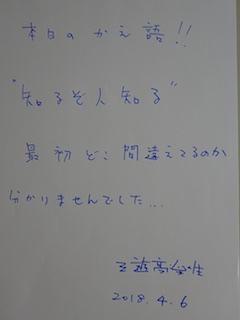 本日のかえ語!!
"知るぞ人知る"
最初どこ間違えてるのか
分かりませんでした...
2018.4.6